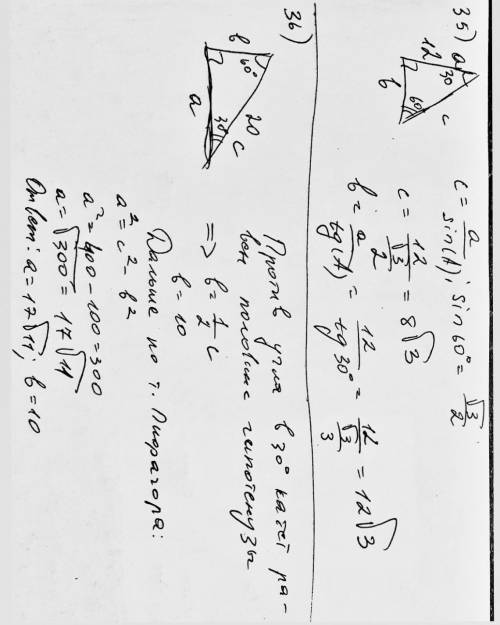 35)
a 12 30 60° b c
c = a / sin(A); sin 60° = √3/2
c = 12 / (√3/2) = 8√3
b = a / tg(A) = 12 / tg 30° = 12 / (√3/3) = 12√3
36)
b 60° 20 c 30 a
Против угла в 30° катет ра-
вен половине гипотенузы
=> b = 1/2 c
b = 10
Дальше по т. Пифагора:
a² = c² - b²
a² = 400 - 100 = 300
a = √300 = 17√11
Ответ: a = 17√11; b = 10